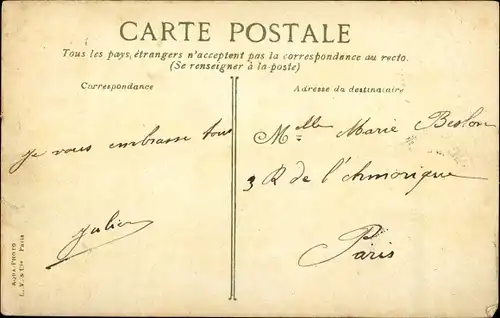 CARTE POSTALE
Tous les pays étrangers n'acceptent pas la correspondance au recto.
(Se renseigner à la poste)
Correspondance
Adresse du destinataire
Je vous embrasse tous
Julien
Melle Marie
3 R de l'Armorique
Paris
AQUA-PHOTO
L. V. & Cie Paris